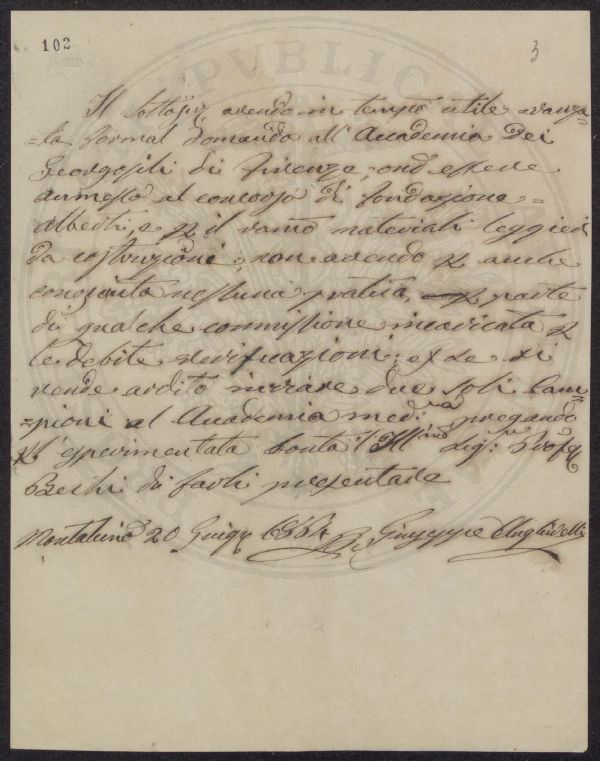 102
3
Il Sottosto, avendo in tempo utile avanza-
-ta formal domanda all' Accademia Dei
Georgofili di Firenze, ond essere
ammesso al concorso di fondazione
Alberti, e p il ramo materiali leggieri
da costruzioni, non avendo p anche
conosciuta nessuna pratica, parte
di qualche commissione incaricata p
le debite verificazioni; ex se si
rende ardito inviare due soli Cam-
-pioni al Accademia med:ma pregando
l'esperimentata bontà l'Ill:mo Sig:r Profs
Bechi di farli presentare
Montalcino 20 Giugo 1864 Giuseppe